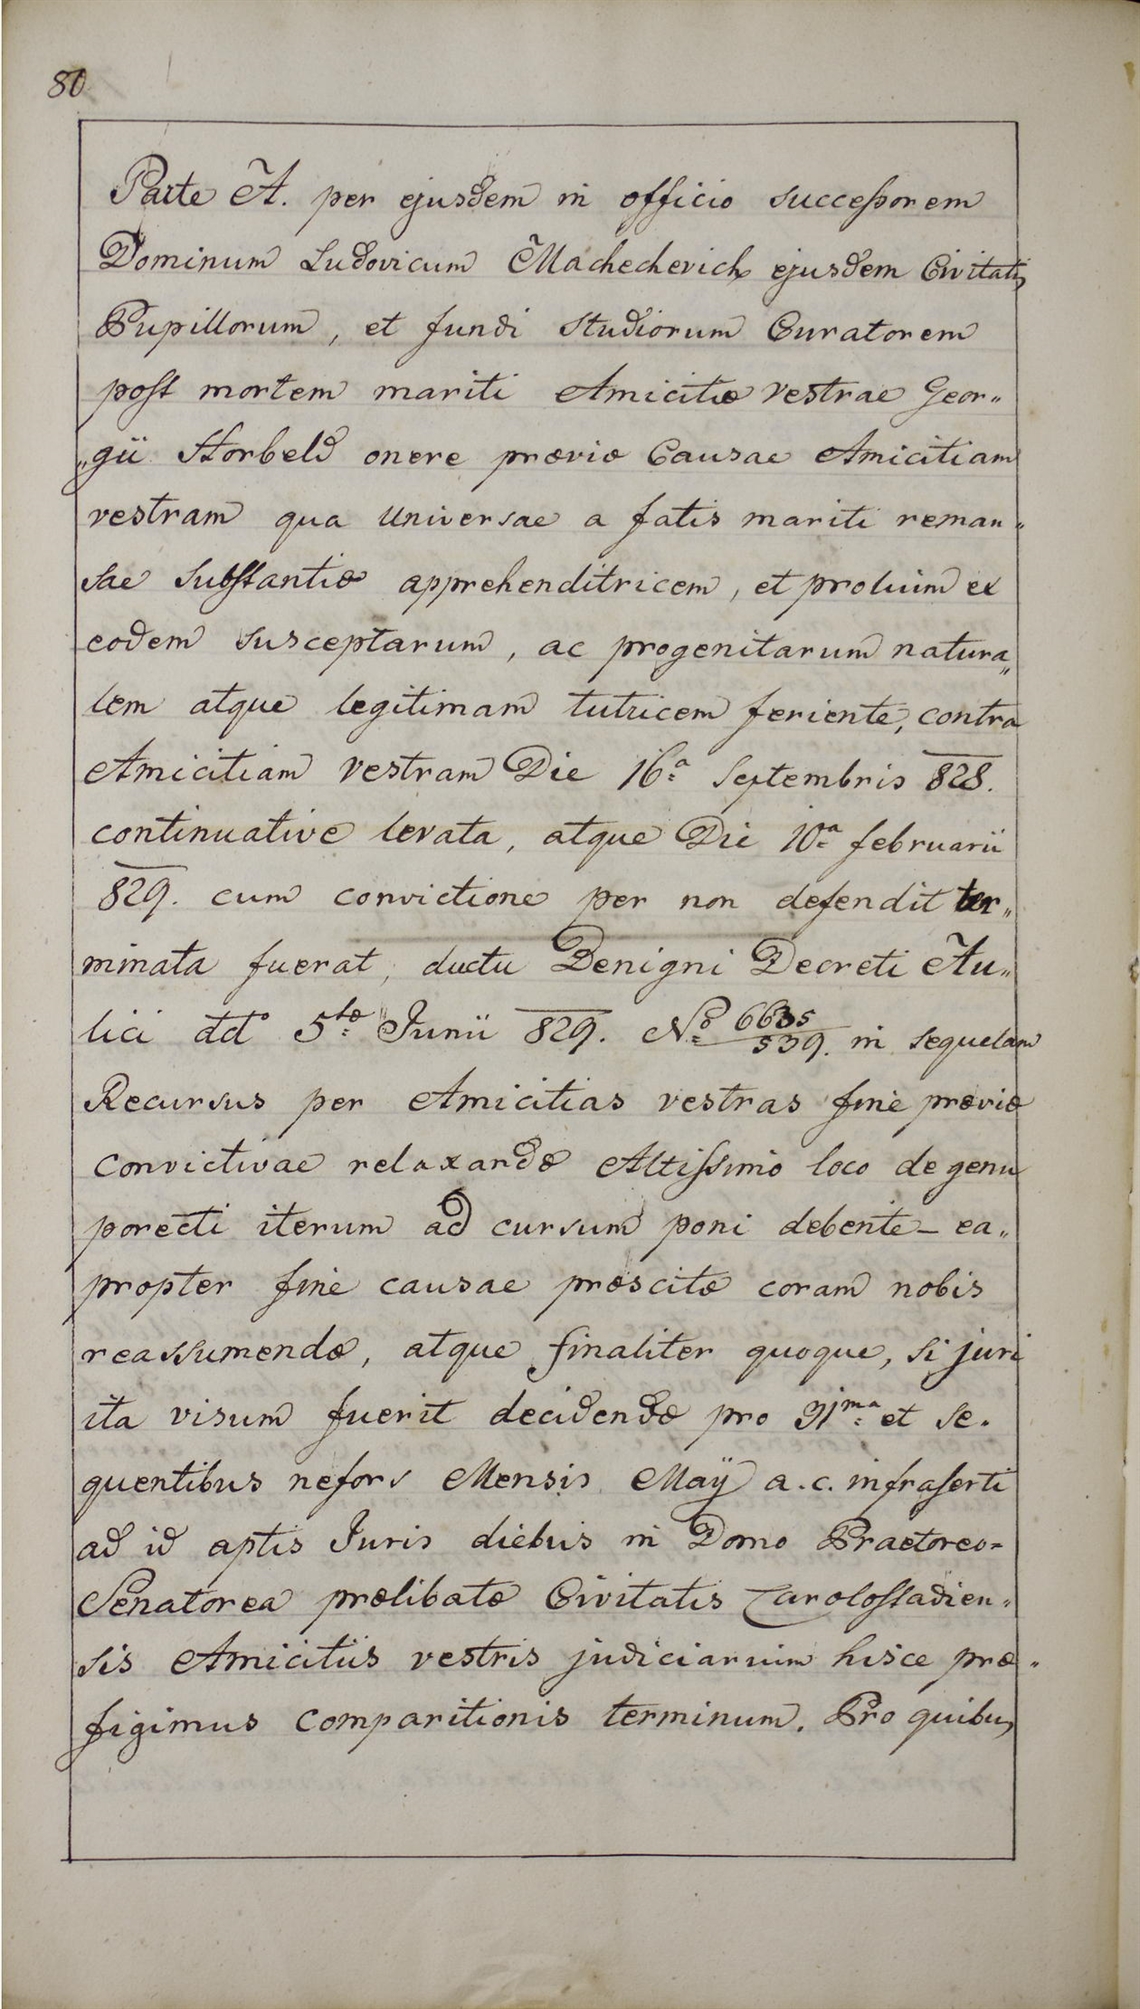 80
Parte A. per ejusdem in officio successorem
Dominum Ludovicum Machechevich ejusdem Civitatis
Pupillorum, et fundi Studiorum Curatorem
post mortem mariti Amicitiæ vestrae Geor„
„gii Horbeld onere præviæ Causae Amicitiam
vestram qua Universae a fatis mariti reman„
sae Substantiæ apprehenditricem, et prolium ex
eodem susceptarum, ac progenitarum natura„
lem atque legitimam tutricem feriente, contra
Amicitiam vestram Die 16a Septembris 828.
continuative levata, atque Die 10a februarii
829. cum convictione per non defendit ter„
minata fuerat, ductu Benigni Decreti Au„
lici ddto 5tæ Junii 829. No 6635/539. in sequelam
Recursus per Amicitias vestras fine præviæ
convictivae relaxandæ Altissimo loco de genu
porecti iterum ad cursum poni debente – ea„
propter fine causae præscitæ coram nobis
reassumendæ, atque finaliter quoque, si juri
ita visum fuerit decidendæ pro 31ma et se.
quentibus nefors Mensis Maÿ a. c. infraserti
ad id aptis Juris diebus in Domo Praetoreo=
Senatorea prælibatæ Civitatis Carolostadien„
sis Amicitiis vestris judiciarium hisce præ„
figimus comparitionis terminum. Pro quibus